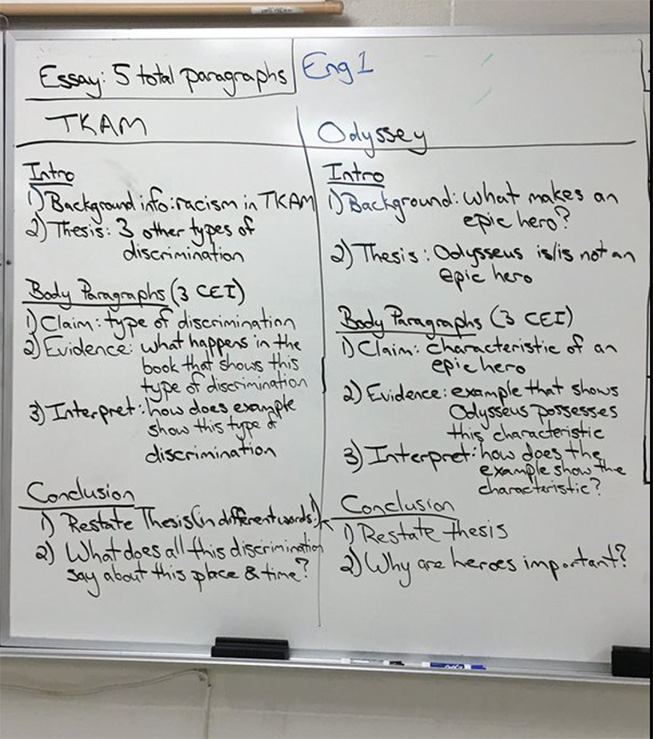 Essay: 5 total paragraphs
Eng 1
TKAM
Intro
1) Background info: racism in TKAM
2) Thesis: 3 other types of
discrimination
Body Paragraphs (3 CEI)
1) Claim: type of discrimination
2) Evidence: what happens in the
book that shows this
type of discrimination
3) Interpret: how does example
show this type of
discrimination
Conclusion
1) Restate Thesis (in different words!)
2) What does all this discrimination
say about this place & time?
Odyssey
Intro
1) Background: what makes an
epic hero?
2) Thesis: Odysseus is/is not an
epic hero
Body Paragraphs (3 CEI)
1) Claim: characteristic of an
epic hero
2) Evidence: example that shows
Odysseus possesses
this characteristic
3) Interpret: how does the
example show the
characteristic?
Conclusion
1) Restate thesis
2) Why are heroes important?